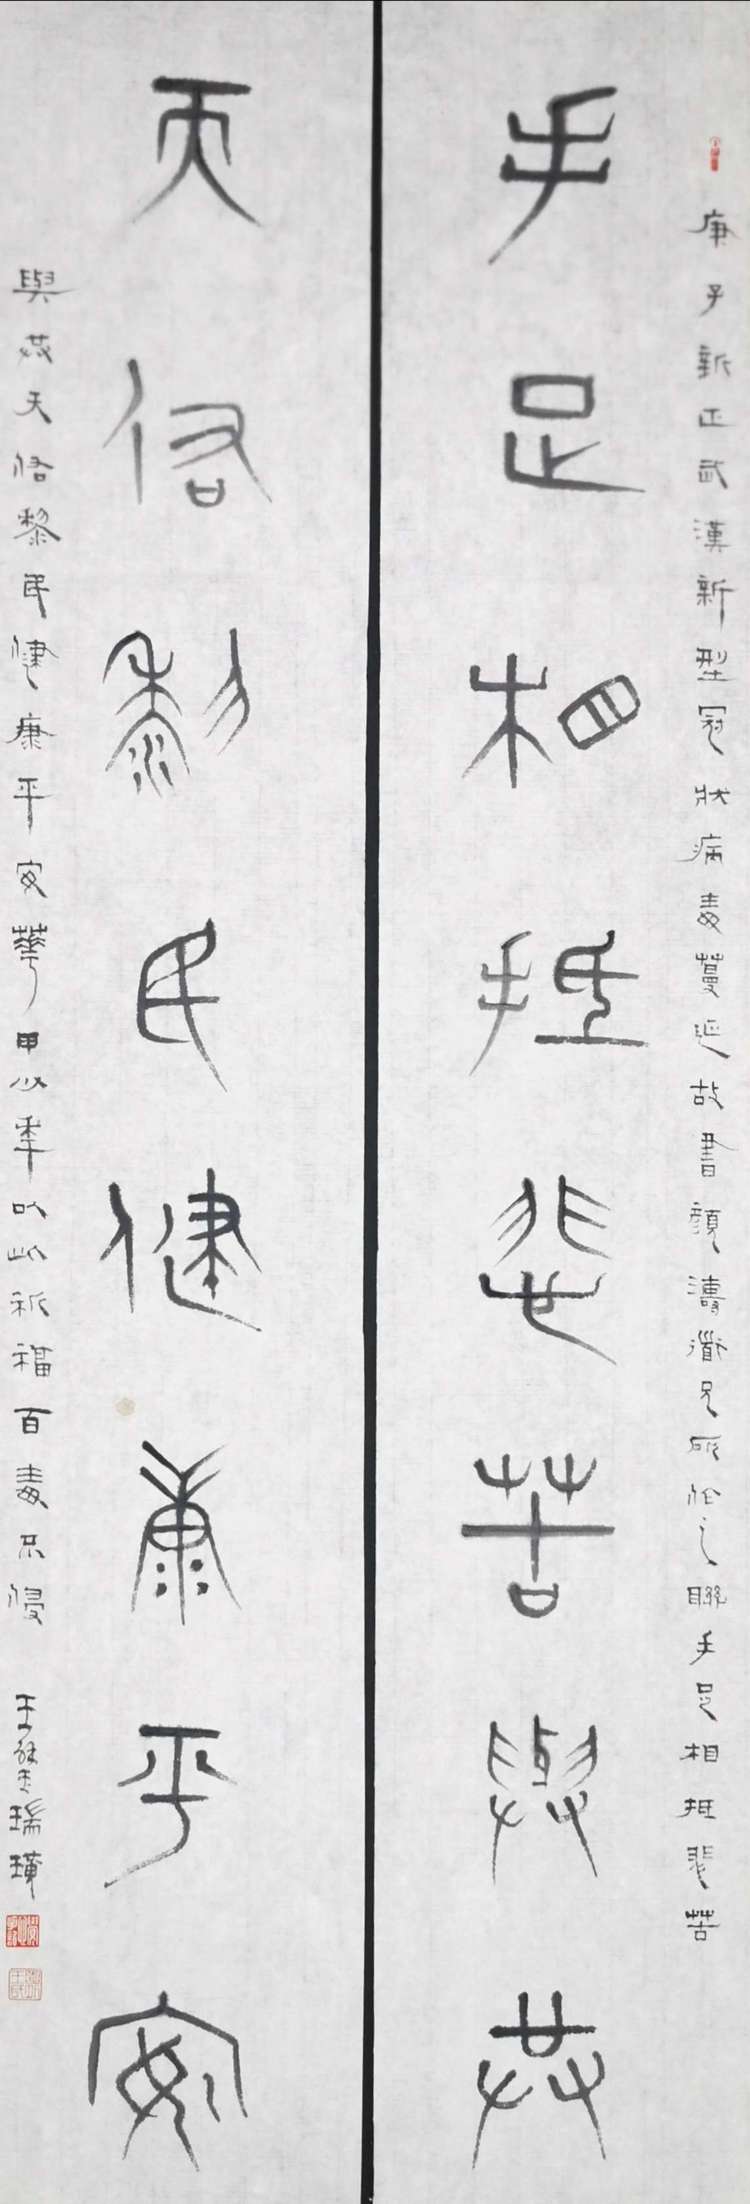 庚子新正武漢新型冠狀病毒蔓延故書顏濤道兄所作之聯手足相抵悲苦
手足相抵悲苦與共
天佑黎民健康平安
與共天佑黎民健康平安華甲少年以此祈福百毒不侵 王